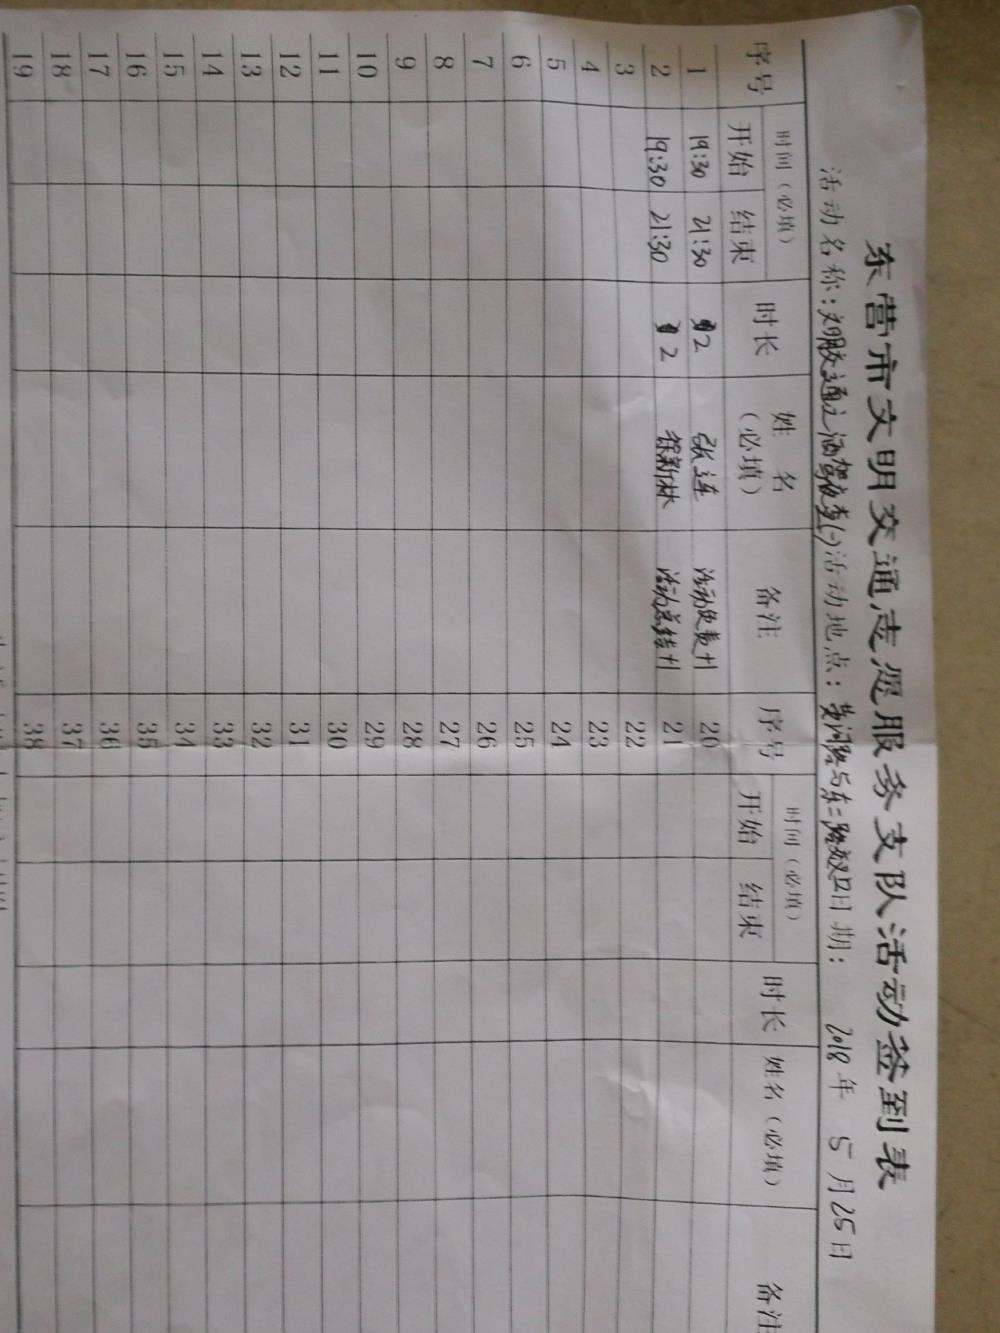 东营市文明交通志愿服务支队活动签到表
活动名称：文明交通之酒驾夜查(一)活动地点：黄河路与东二路交叉口日期： 2018年 5月25日
序号 时间（必填） 时长 姓名（必填） 备注 序号 时间（必填） 时长 姓名（必填） 备注
开始 结束 开始 结束
1 19:30 21:30 2 张连 活动负责+1 20
2 19:30 21:30 2 徐新林 活动总结+1 21
3 22
4 23
5 24
6 25
7 26
8 27
9 28
10 29
11 30
12 31
13 32
14 33
15 34
16 35
17 36
18 37
19 38